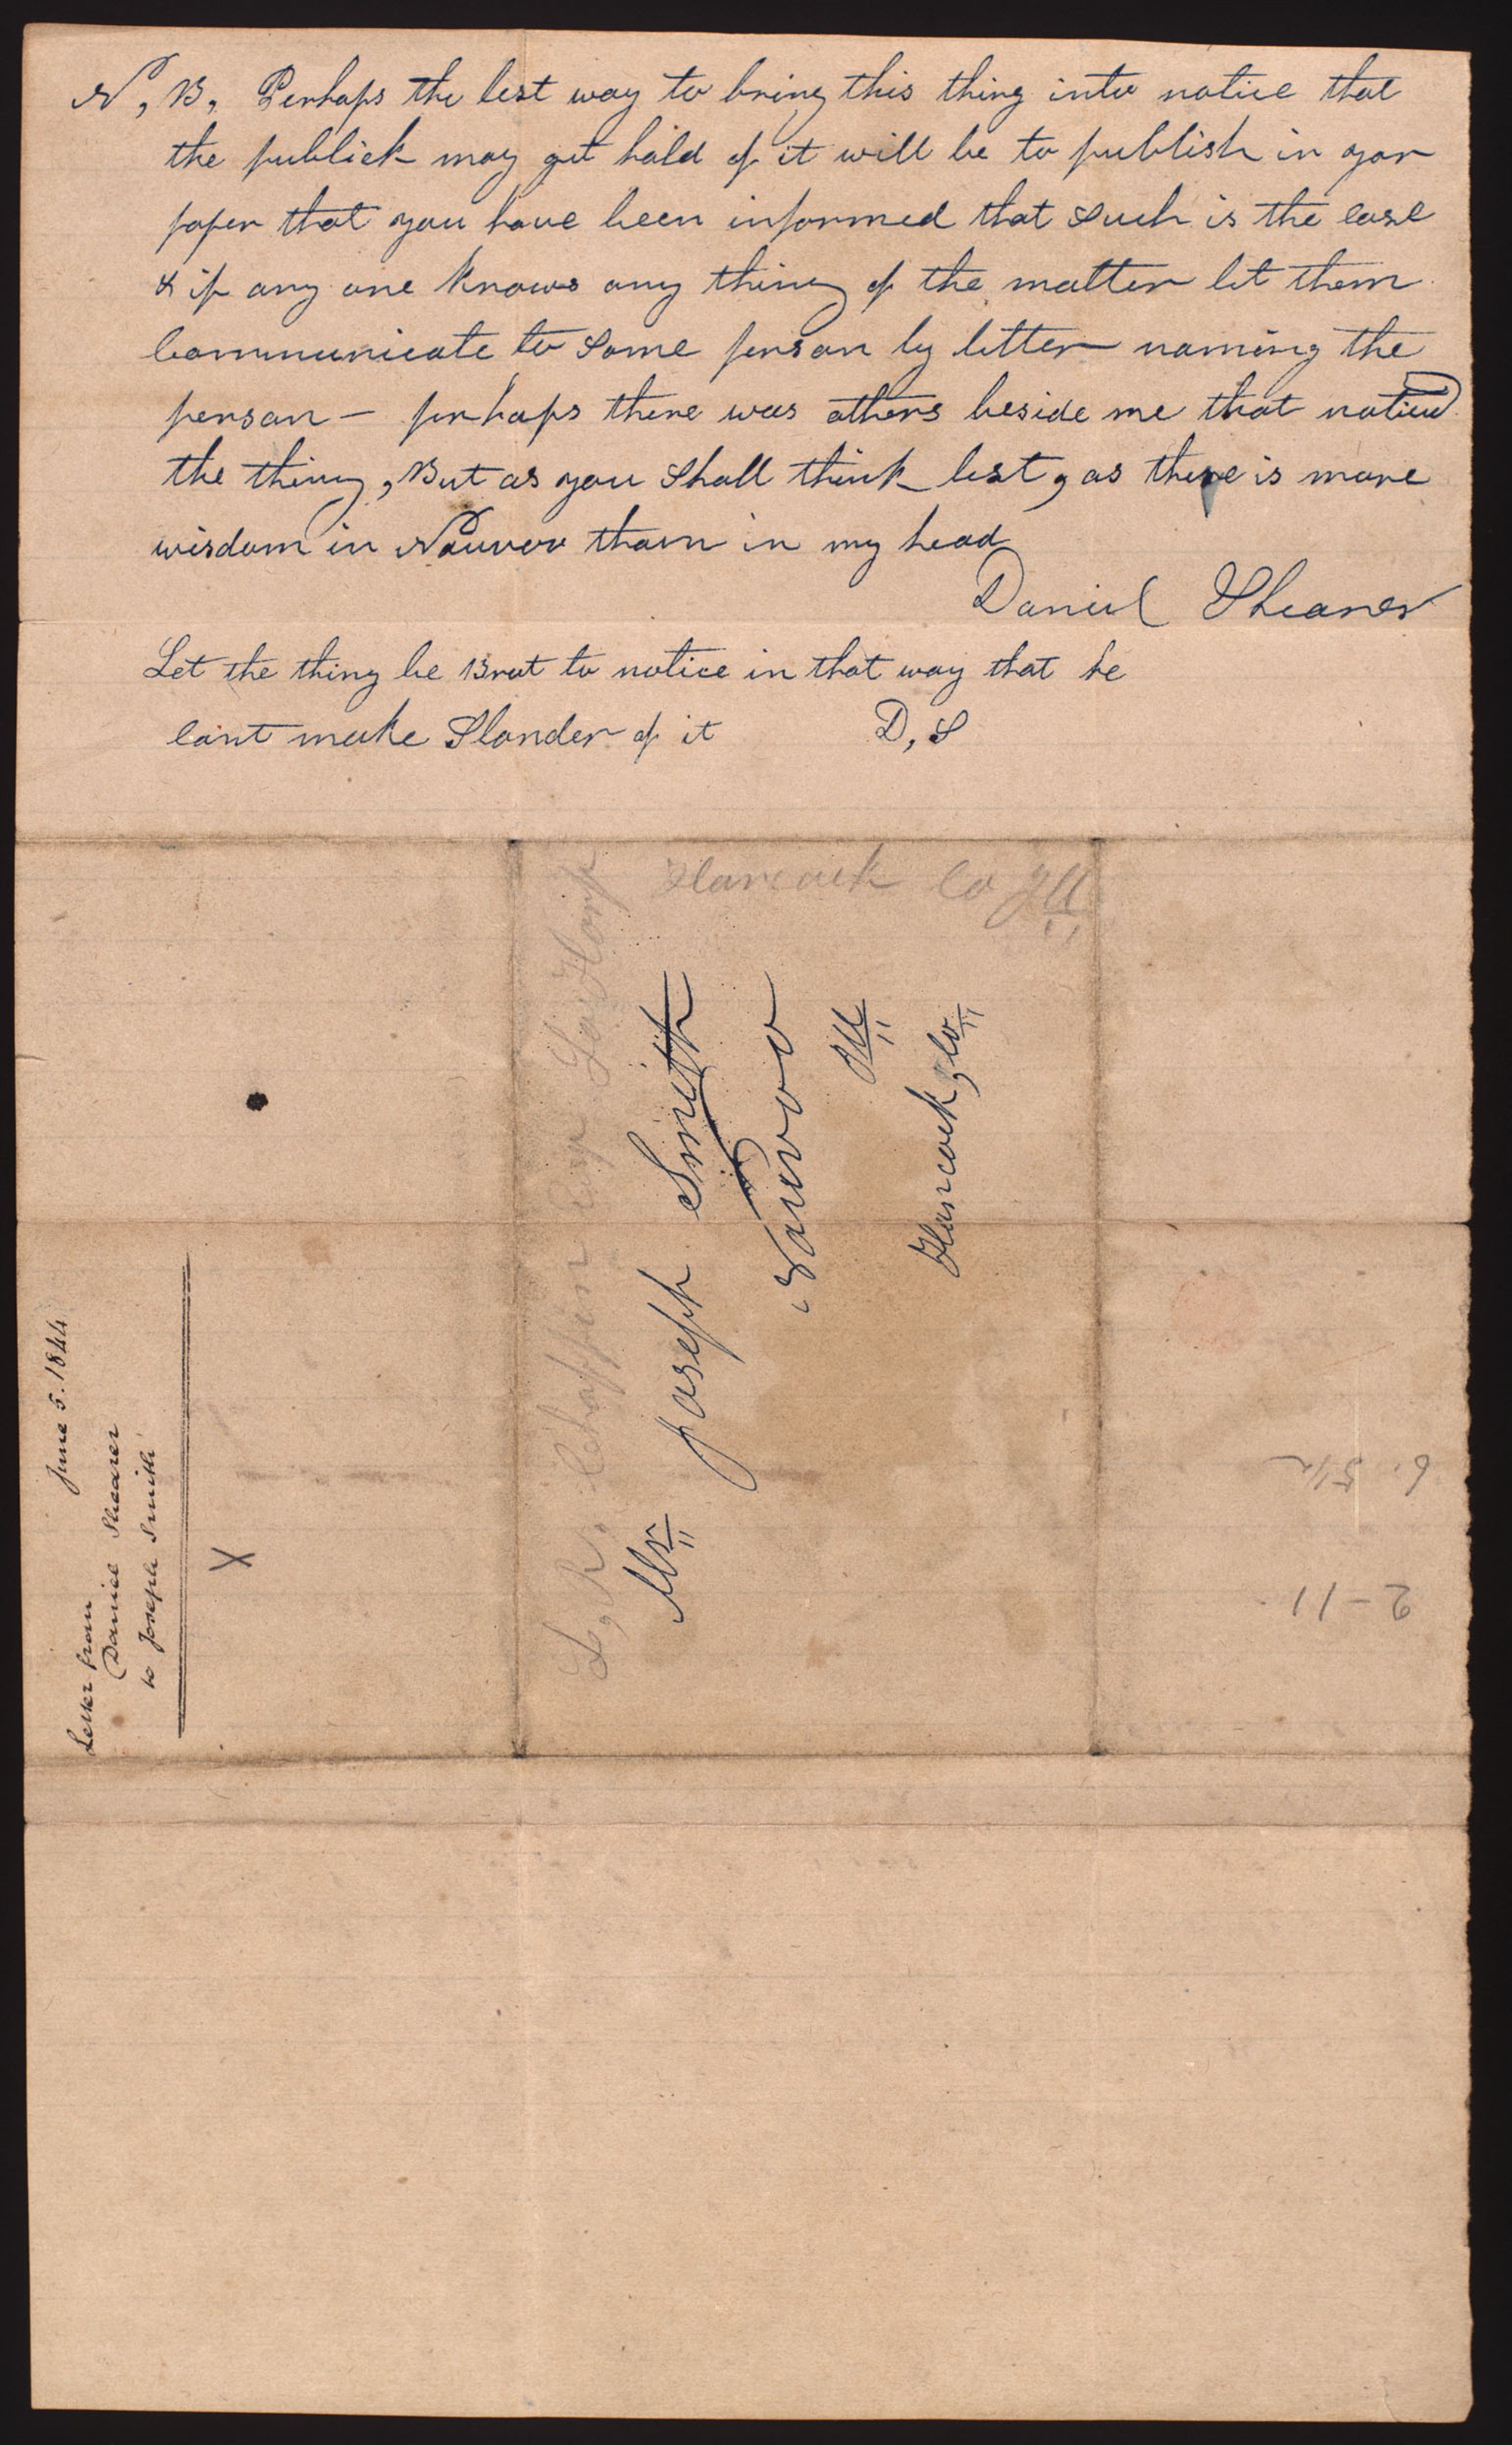 N, B, Perhaps the best way to bring this thing into notice that
the publick may get hold of it will be to publish in yor
paper that you have been informed that Such is the case
& if any one knows any thing of the matter let them
Communicate to Some person by letter naming the
person — perhaps there was others beside me that noticed
the thing, But as you Shall think best, as there is more
wisdom in Nauvoo than in my head
Daniel Shearer
Let the thing be Brot to notice in that way that he
cant make Slander of it D, S
Hancock Co Ill
L, R, Chaffin Esqr La Harp
Mr Joseph Smith
Nauvoo
Ill
Hancock, Co
June 5. 1844
Letter from
Daniel Shearer
to Joseph Smith
X
6. 5/12
2-11